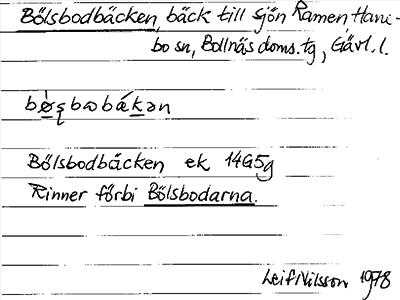 Bölsbodbäcken, bäck till sjön Ramen, Hane-
bo sn, Bollnäs doms. tg, Gävl. l.
Bölsbodbäcken ek 14G5g
Rinner förbi Bölsbodarna.
Leif Nilsson 1978